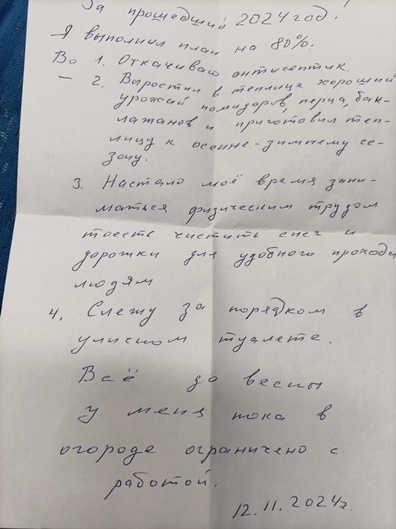 За прошедший 2024 год!
Я выполнил план на 80%.
Во 1. Откачиваю антисептик.
– 2. Выростил в теплице хороший
урожай помидоров, перца, бак-
лажанов и приготовил теп-
лицу к осенне-зимнему се-
зону.
3. Настало моё время зани-
маться физическим трудом
тоесть чистить снег и
дорожки для удобного прохода
людям
4. Слежу за порядком в
уличном туалете.
Всё до весны
у меня пока в
огороде ограничено с
работой.
12.11.2024г.